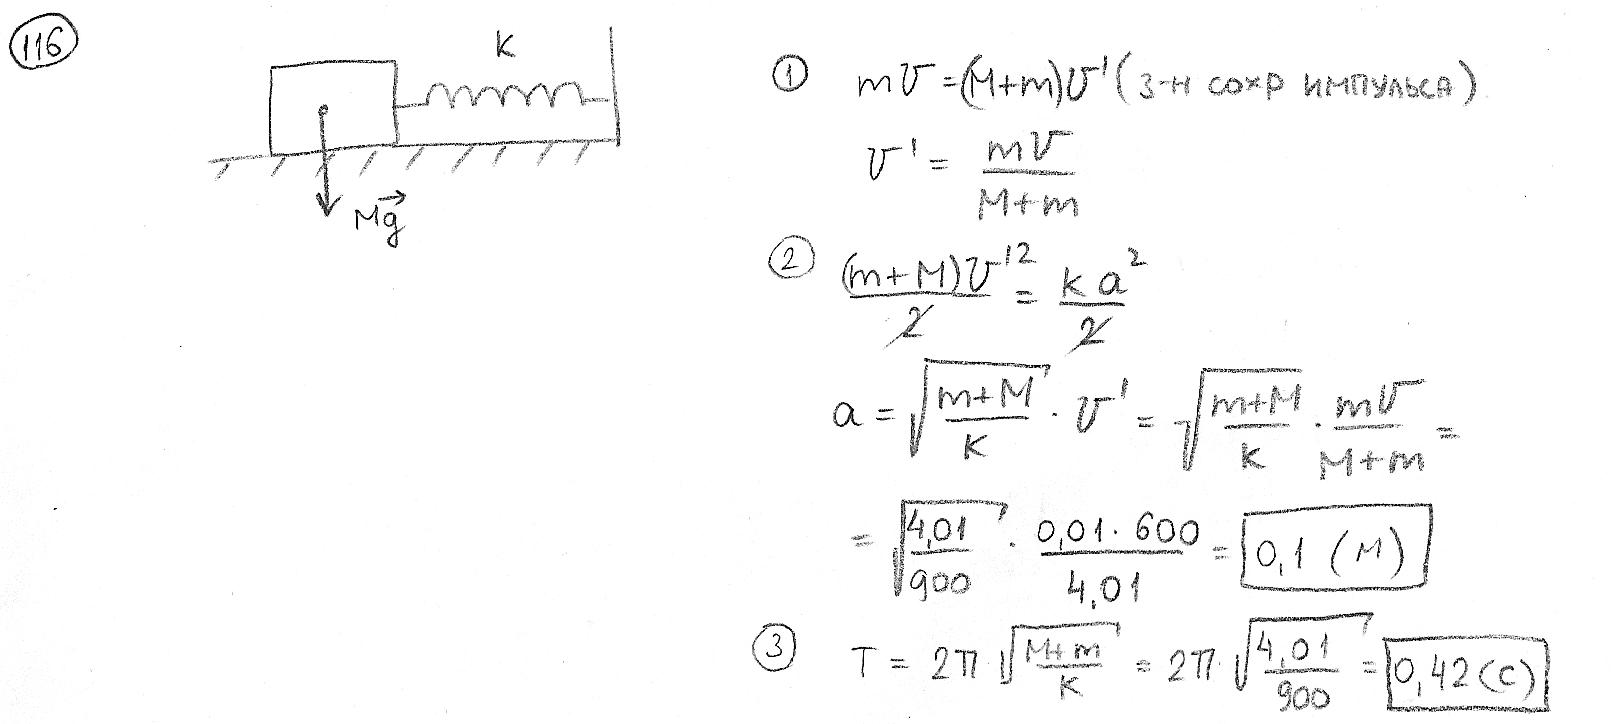 116
K
Mg
① mv = (M+m)v' (з-н сохр импульса)
v' = mv / M+m
② (m+M)v'² / 2 = k a² / 2
a = √(m+M / k) · v' = √(m+M / k) · mv / M+m =
= √(4,01 / 900) · 0,01 · 600 / 4,01 = 0,1 (м)
③ T = 2π √(M+m / k) = 2π · √(4,01 / 900) = 0,42 (с)